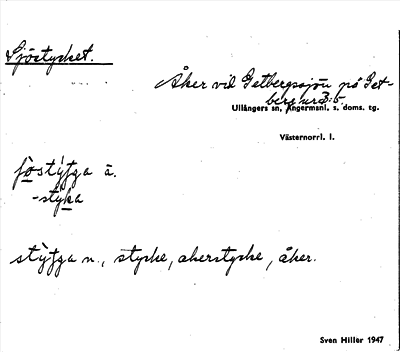 Sjöstycket.
Åker vid Getbergssjön på Get-
berg nr 3:5.
Ullångers sn, Ångermanl. s. doms. tg.
Västernorrl. l.
å.
n., stycke, åkerstycke, åker.
Sven Hiller 1947